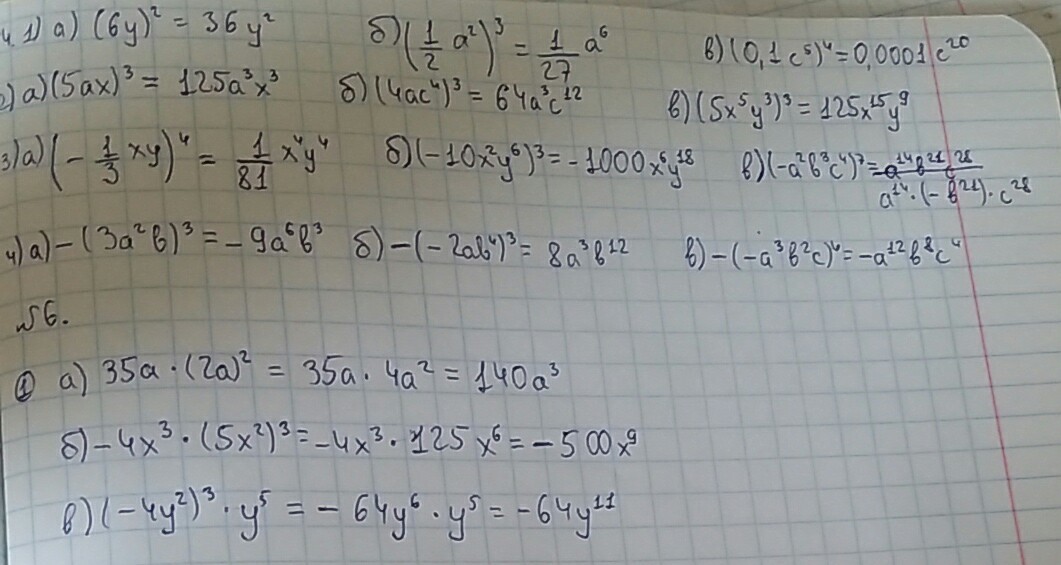 4. 1) а) (6y)² = 36y² б) (1/2 a²)³ = 1/27 a⁶ в) (0,1c⁵)⁴ = 0,0001c²⁰
2) а) (5ax)³ = 125a³x³ б) (4ac⁴)³ = 64a³c¹² в) (5x⁵y³)³ = 125x¹⁵y⁹
3) а) (- 1/3 xy)⁴ = 1/81 x⁴y⁴ б) (-10x²y⁶)³ = -1000x⁶y¹⁸ в) (-a²b³c⁴)⁷ = a¹⁴b²¹c²⁸
a¹⁴·(-b²¹)·c²⁸
4) а) -(3a²b)³ = -9a⁶b³ б) -(-2ab⁴)³ = 8a³b¹² в) -(-a³b²c)⁴ = -a¹²b⁸c⁴
№6.
① а) 35a·(2a)² = 35a·4a² = 140a³
б) -4x³·(5x²)³ = -4x³·125x⁶ = -500x⁹
в) (-4y²)³·y⁵ = -64y⁶·y⁵ = -64y¹¹